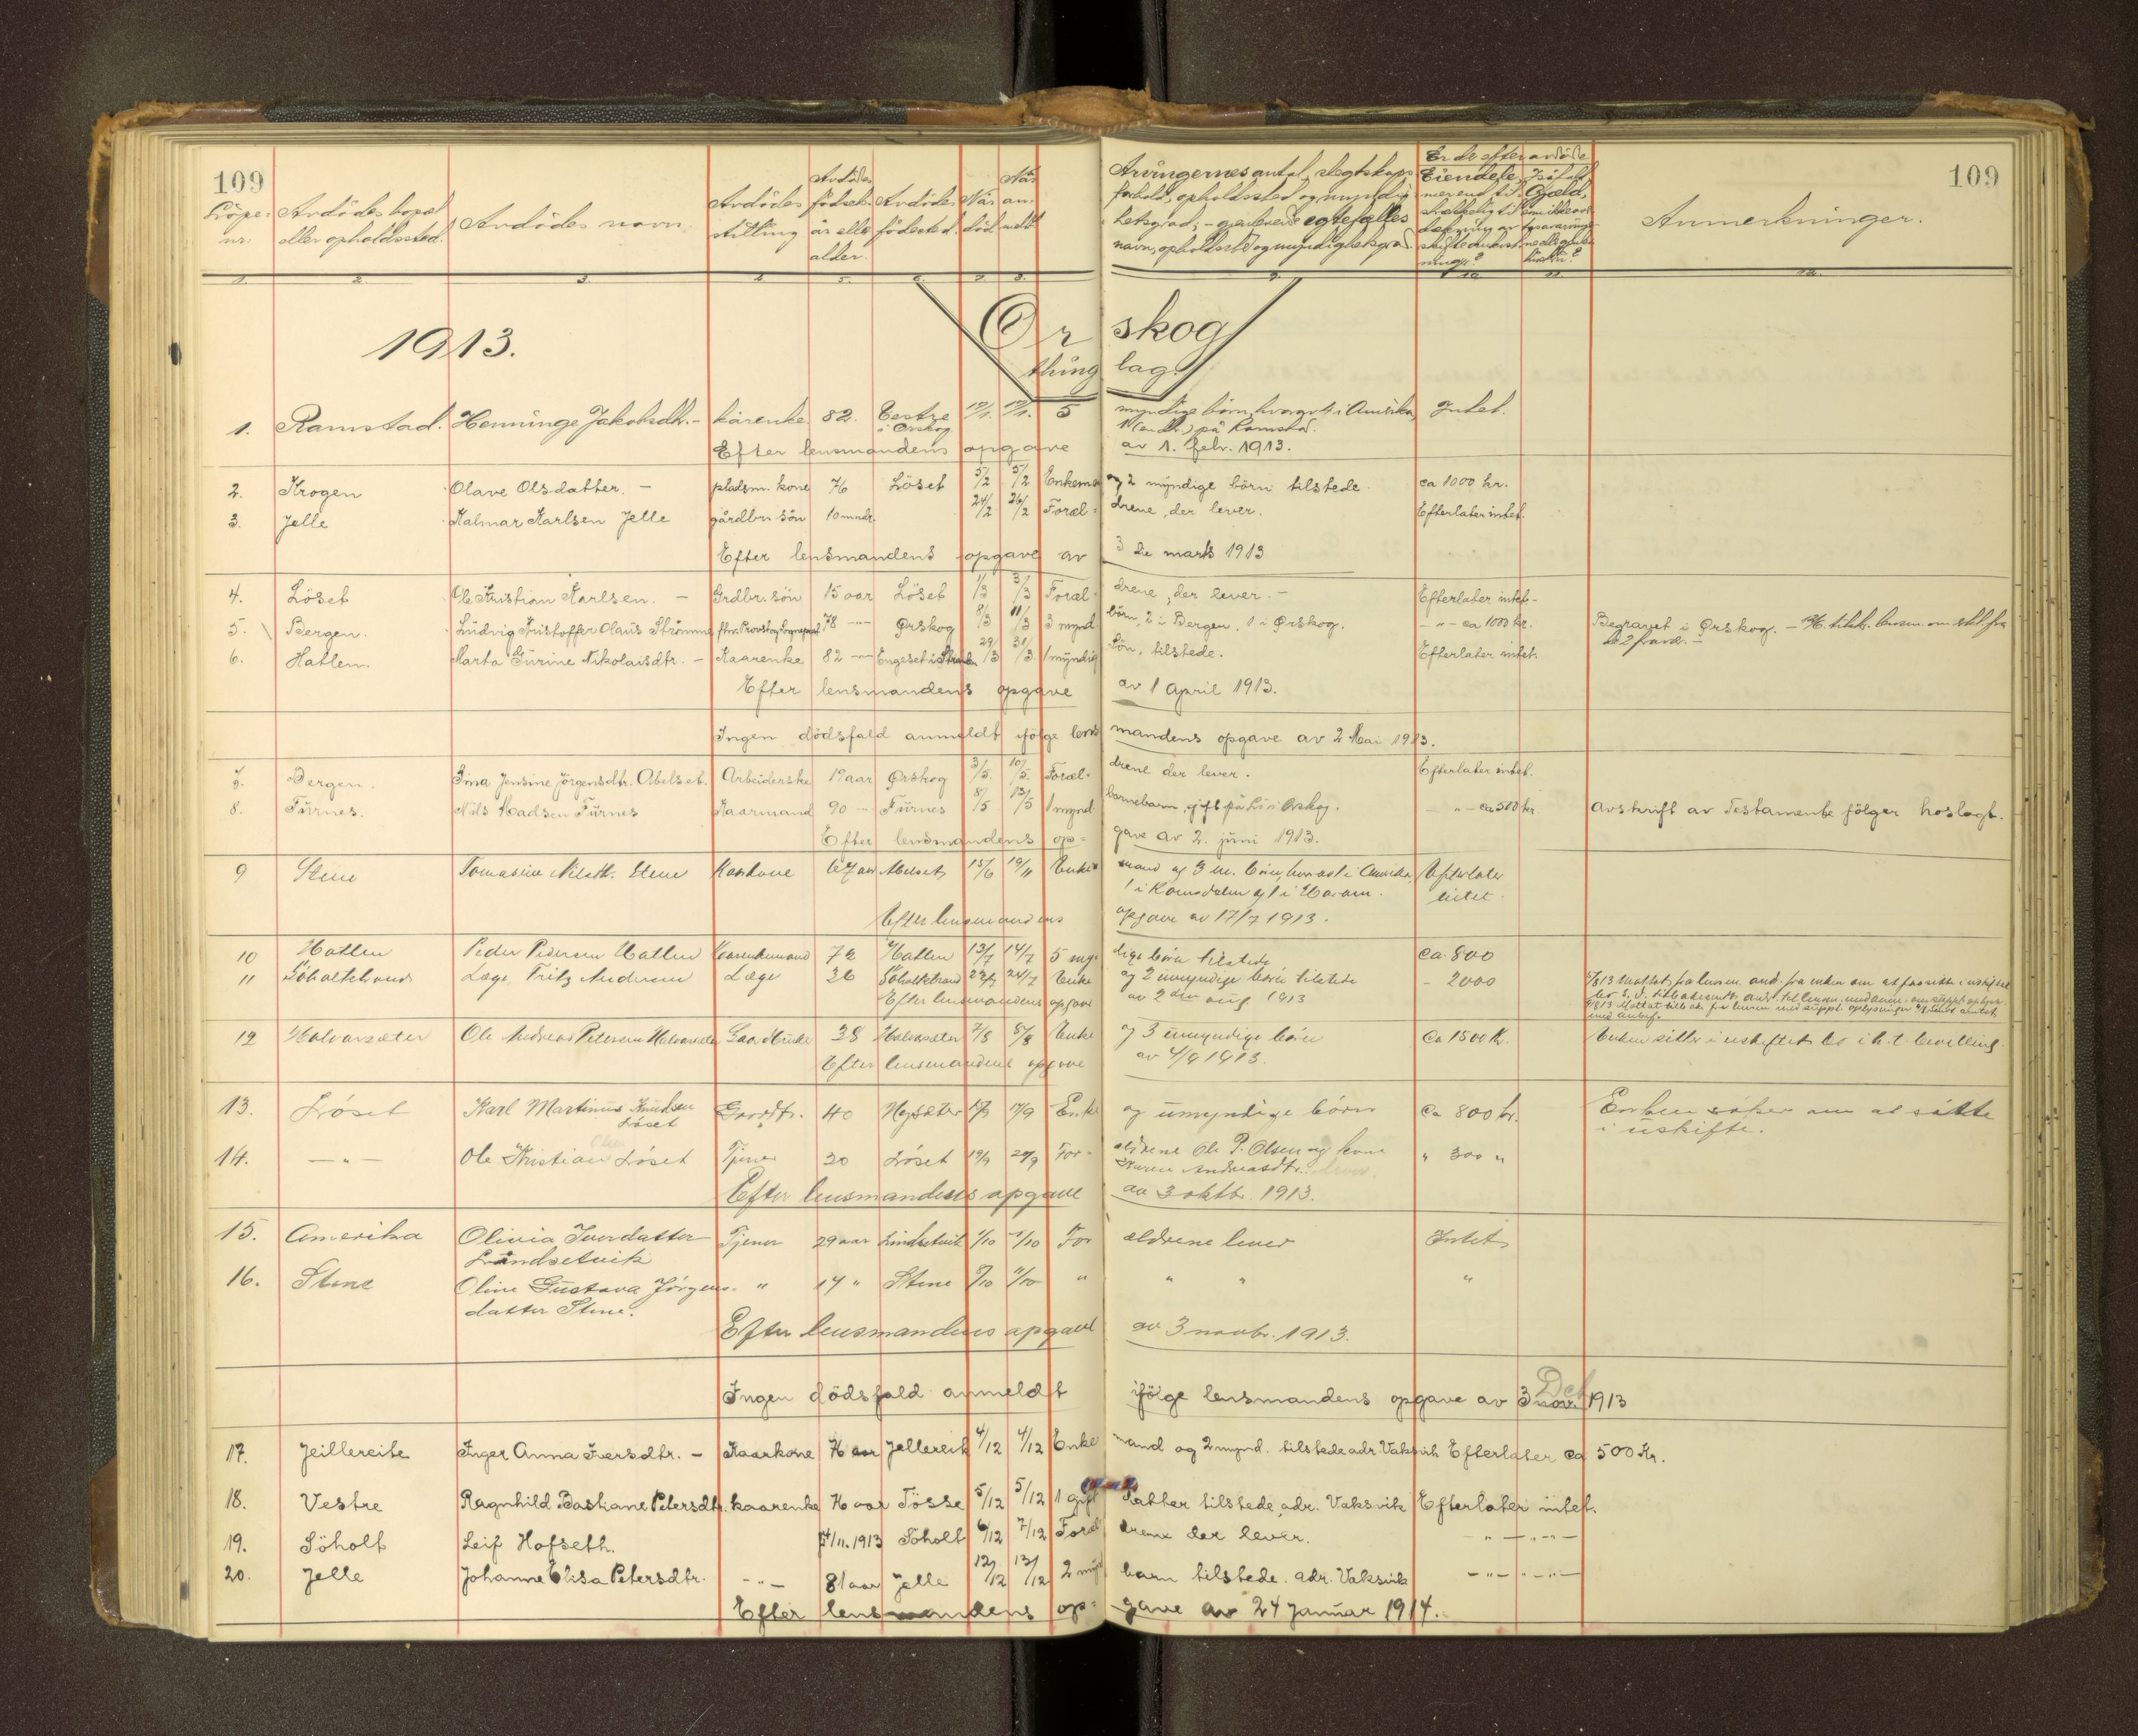 109
109
Löpe- nr.
Avdödes bopæl eller opholdssted.
Avdödes navn.
Avdödes stilling
Avdödes födsels- år eller alder.
Avdödes födested.
Når död
Når an- meldt
Arvingernes antal, slegtskaps- forhold, opholdssted og myndig- hetsgrad; - gjenlevende egtefælles navn, opholdssted og myndighetsgrad.
Er de efter avdöde Eiendele,
Gjæld,
Anmerkninger.
1. 2. 3. 4. 5. 6. 7. 8. 9. 10. 11. 12.
1913.
Ørskog
thinglag.
1. Ramstad. Henninge Jakobsdtr. - kårenke 82. Vestre i Ørskog 5 myndige börn, hvorav 4 i Amerika, 1 (en dtr.) på Ramstad. Intet.
Efter lensmandens opgave av 1. febr. 1913.
2. Krogen Olave Olsdatter. - pladsm. kone 76 Löset 5/2 5/2 Enkemand og 2 myndige börn tilstede. ca 1000 kr.
3. Jelle Kalmar Karlsen Jelle gårdbr. sön 10 mndr. 24/2 26/2 Foræl- drene, der lever. Efterlater intet.
Efter lensmandens opgave av 3 de marts 1913
4. Löset Ole Kristian Karlsen. - Grdbr. sön 15 aar Löset 1/3 3/3 Foræl- drene, der lever. - Efterlater intet -
5. Bergen. Ludvig Kristoffer Olaus Strömme fhv. Provst og Sogneprest 78 -"- Ørskog 8/3 11/3 3 mynd. börn, 2 i Bergen, 1 i Ørskog. -"- ca 1000 kr. Begravet i Ørskog. -
6. Hatlen Marta Gurine Nikolaisdtr. - Kaarenke 82 -"- Engeset i Stranden 29/3 31/3. 1 myndig Sön, tilstede. Efterlater intet.
Efter lensmandens opgave av 1 April 1913.
Ingen dödsfald anmeldt ifölge lens mandens opgave av 2 Mai 1913.
7. Bergen. Jensine Jörgensdtr. Abelset. Arbeiderske 19 aar Ørskog 3/5. 10/5. Foræl- drene der lever. Efterlater intet.
8. Furnes. Nils Madsen Furnes Kaarmand 90 - Furnes 8/5 13/5 1 mynd. barnebarn, gift på i Ørskog. -"- ca 500 kr. Avskrift av Testamente fölger hoslagt.
Efter lensmandens op- gave av 2. juni 1913.
9 Stene Tomasine Nilsdtr. Stene Karkone 67 aar 15/6 Enke- mand og 3 m. börn, hvorav 1 i Amerika, 1 i Romsdalen og 1 i Haram. Efterlater intet.
Efter lensmandens opgave av 17/7 1913.
10 Hatlen Peder Pedersen Hatlen Kaarenkemand 72 Hatlen 13/7 14/7 5 myn- dige börn tilstede ca. 800
11 Söholtstrand Læge, Fritz Andersen Læge 36 Söholtstrand 24/7 Enke og 2 umyndige börn tilstede - 2000
Efter lensmandens opgave av 2den aug. 1913
12 Halvarsæter Ole Andreas Petersen Halvarsæter Gaardbruker 38 Halvarsæter 7/8 8/8 Enke og 3 umyndige börn Ca 1500 Kr. Enken sitter i uskiftet bo i h.t. bevilling.
Efter lensmandens opgave av 4/9 1913.
13. Löset Karl Martinus Knudsen Löset Gaardbr. 40 17/9 Enke og umyndige börn Ca 800 kr. Enken söker om at sitte i uskifte.
14. -"- Ole Kristian Löset Tjener 30 Löset For- ældrene Ole P. Olsen og kone Karen Andreasdtr. lever. " 300 "
Efter lensmandens opgave av 3 oktbr. 1913.
15. Amerika Olivia Iversdatter Landsetvik Tjener 29 aar Lindsetvik 1/10 For ældrene lever Intet
16. Stene Oline Gustava Jörgens- datter Stene. " 14 " Stene 8/10 11/10 " " " "
Efter lensmandens opgave av 3 novbr. 1913.
Ingen dödsfald anmeldt ifölge lensmandens opgave av 3 novr. Det 1913
17. Jeillereite Inger Anna Iversdtr. - Kaarkone 76 aar Jellereit 4/12 4/12 Enke mand og 2 mynd. tilstede adr. Vaksvik Efterlater ca 500 Kr.
18. Vestre Ragnhild Bastiane Petersdtr. kaarenke 76 aar Tösse 5/12 5/12 1 gift Datter tilstede, adr. Vaksvik Efterlater intet.
19. Söholt Leif Hofseth. /11. 1913 Söholt 6/12 7/12 Foræl drene der lever. -"-
20. Jelle Johanne Elisa Petersdtr. -"- 81 aar Jelle 12/12 13/12 2 mynd barn tilstede. adr. Vaksvik -"-
Efter lensmandens op- gave av 24 Januar 1914.